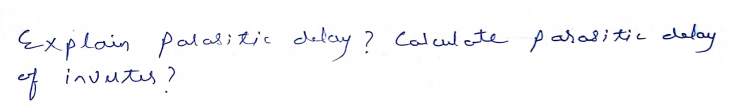 Explain parasitic delay? Calculate parasitic delay
of inverter?